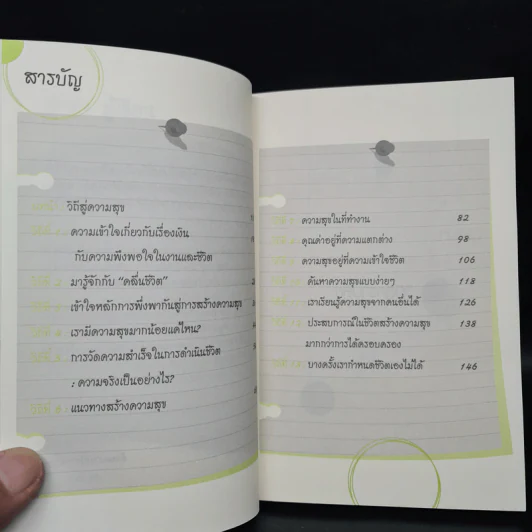 สารบัญ
วิถีสู่ความสุข
วิธีที่ 1 ความเข้าใจเกี่ยวกับเรื่องเงิน
กับความพึงพอใจในงานและชีวิต
วิธีที่ 2 มารู้จักกับ “คลื่นชีวิต”
วิธีที่ 3 เข้าใจหลักการพึ่งพากันสู่การสร้างความสุข
วิธีที่ 4 เรามีความสุขมากน้อยแค่ไหน?
วิธีที่ 5 การวัดความสำเร็จในการดำเนินชีวิต
: ความจริงเป็นอย่างไร?
วิธีที่ 6 แนวทางสร้างความสุข
ความสุขในที่ทำงาน 82
คุณค่าอยู่ที่ความแตกต่าง 98
ความสุขอยู่ที่ความเข้าใจชีวิต 106
ค้นหาความสุขแบบง่ายๆ 118
เราเรียนรู้ความสุขจากคนอื่นได้ 126
ประสบการณ์ในชีวิตสร้างความสุข 138
มากกว่าการได้ครอบครอง
บางครั้งเรากำหนดชีวิตเองไม่ได้ 146